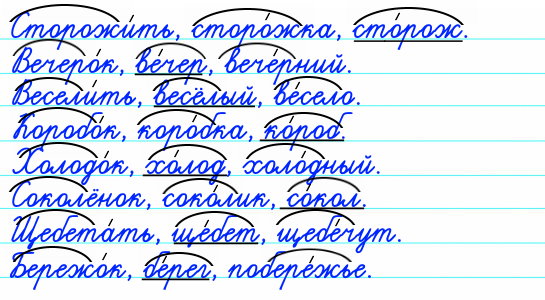 Сторожи́ть, сторо́жка, сто́рож.
Вечеро́к, ве́чер, вече́рний.
Весели́ть, весёлый, ве́село.
Коробо́к, коро́бка, ко́роб.
Холодо́к, хо́лод, холо́дный.
Соколёнок, соко́лик, со́кол.
Щебета́ть, ще́бет, щебе́чут.
Бережо́к, бе́рег, побере́жье.